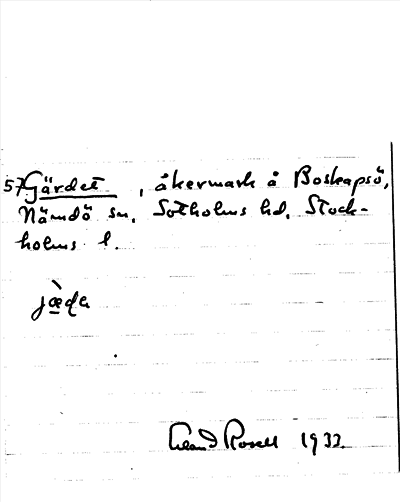 57 Gärdet, åkermark å Boskapsö,
Nämdö sn, Sotholms hd, Stock-
holms l.
Rosell 1933